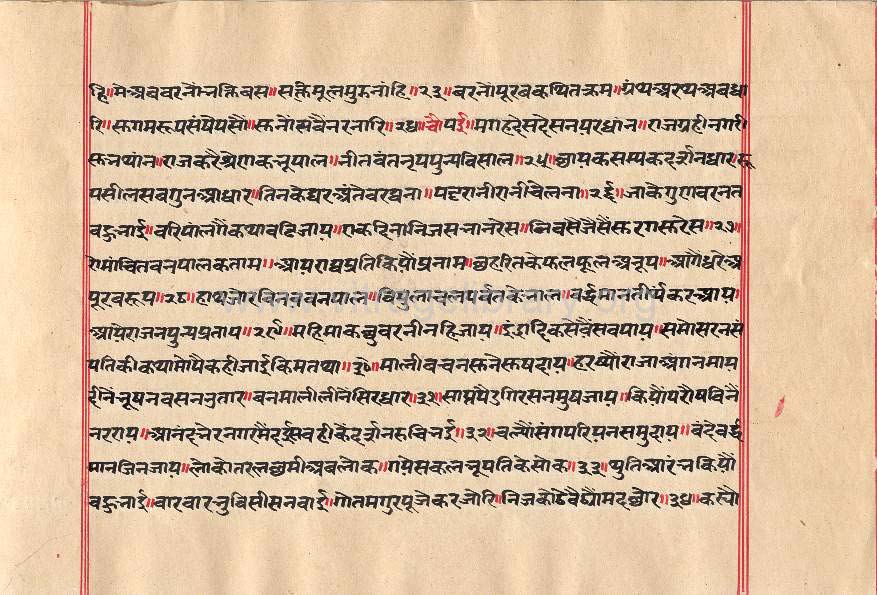 हि॥मे अब वरनौं नक्तिबस॥सक्तिमूलमुह नांहि॥२३॥वरनौं पूरब कथित क्रम॥ग्रंथ अरथ अवधा
रि॥सुगम रूप संषेप सौं॥सुनो सबै नर नारि॥२४॥चौपई॥मगहदेस देसन परधांन॥राजग्रही नगरी
सुनथांन॥राज करै श्रेणक नूपाल॥नीतवंत नृप पुन्य विसाल॥२५॥छायक सम्यक दर्शन धार॥रू
प सील सब गुन आधार॥तिनके घर अंतेवर घना॥पटरानी रानी चेलना॥२६॥जाके गुण वरनत
बहु नाई॥वरि पालौं कथा वढि जाय॥एक दिना निज सना नरेस॥निवसै जैसैं सुरग सुरेस॥२७॥
रोमांचित वनपालक ताम॥आय राय प्रति कियौ प्रनाम॥छह रितके फल फूल अनूप॥आगैं धरे अ
पूरव रूप॥२८॥हाथ जोर बिनवै वनपाल॥विपुलाचल पर्वत के नाल॥वर्द्धमान तीर्थंकर आय॥
आये राजन पुन्य प्रताप॥२९॥महिमा कछु वरनी नहि जाय॥इंद्रादिक सेवैं सब पाय॥समोसरन सं
पतिकी कथा॥मोपै कही जाई किम तथा॥३०॥माली वचन सुने सुषदाय॥हरष्यौ राजा अंग न माय॥
दीनें नूषन वसन नुतार॥वनमाली लीनें सिर धार॥३१॥सात पैंड गिर सनमुष जाय॥कियौ परोष विनै
नरराय॥आनंद नेर नगरमैं दई॥सबही कैं दर्शन रुचि नई॥३२॥चल्यौ संग परियन समुदाय॥वंदे वर्द्ध
मान जिन जाय॥लोकोतर लछमी अवलोक॥गये सकल नूपतिके सोक॥३३॥थुति आरंन कियौ
बहु नाई॥बारबार नुवि सीस नवाई॥गोतम गुर पूजे कर जोरि॥निज कोठे बैठ्यौ मद छोर॥३४॥कर्यौ
www.vitragelibrary.org